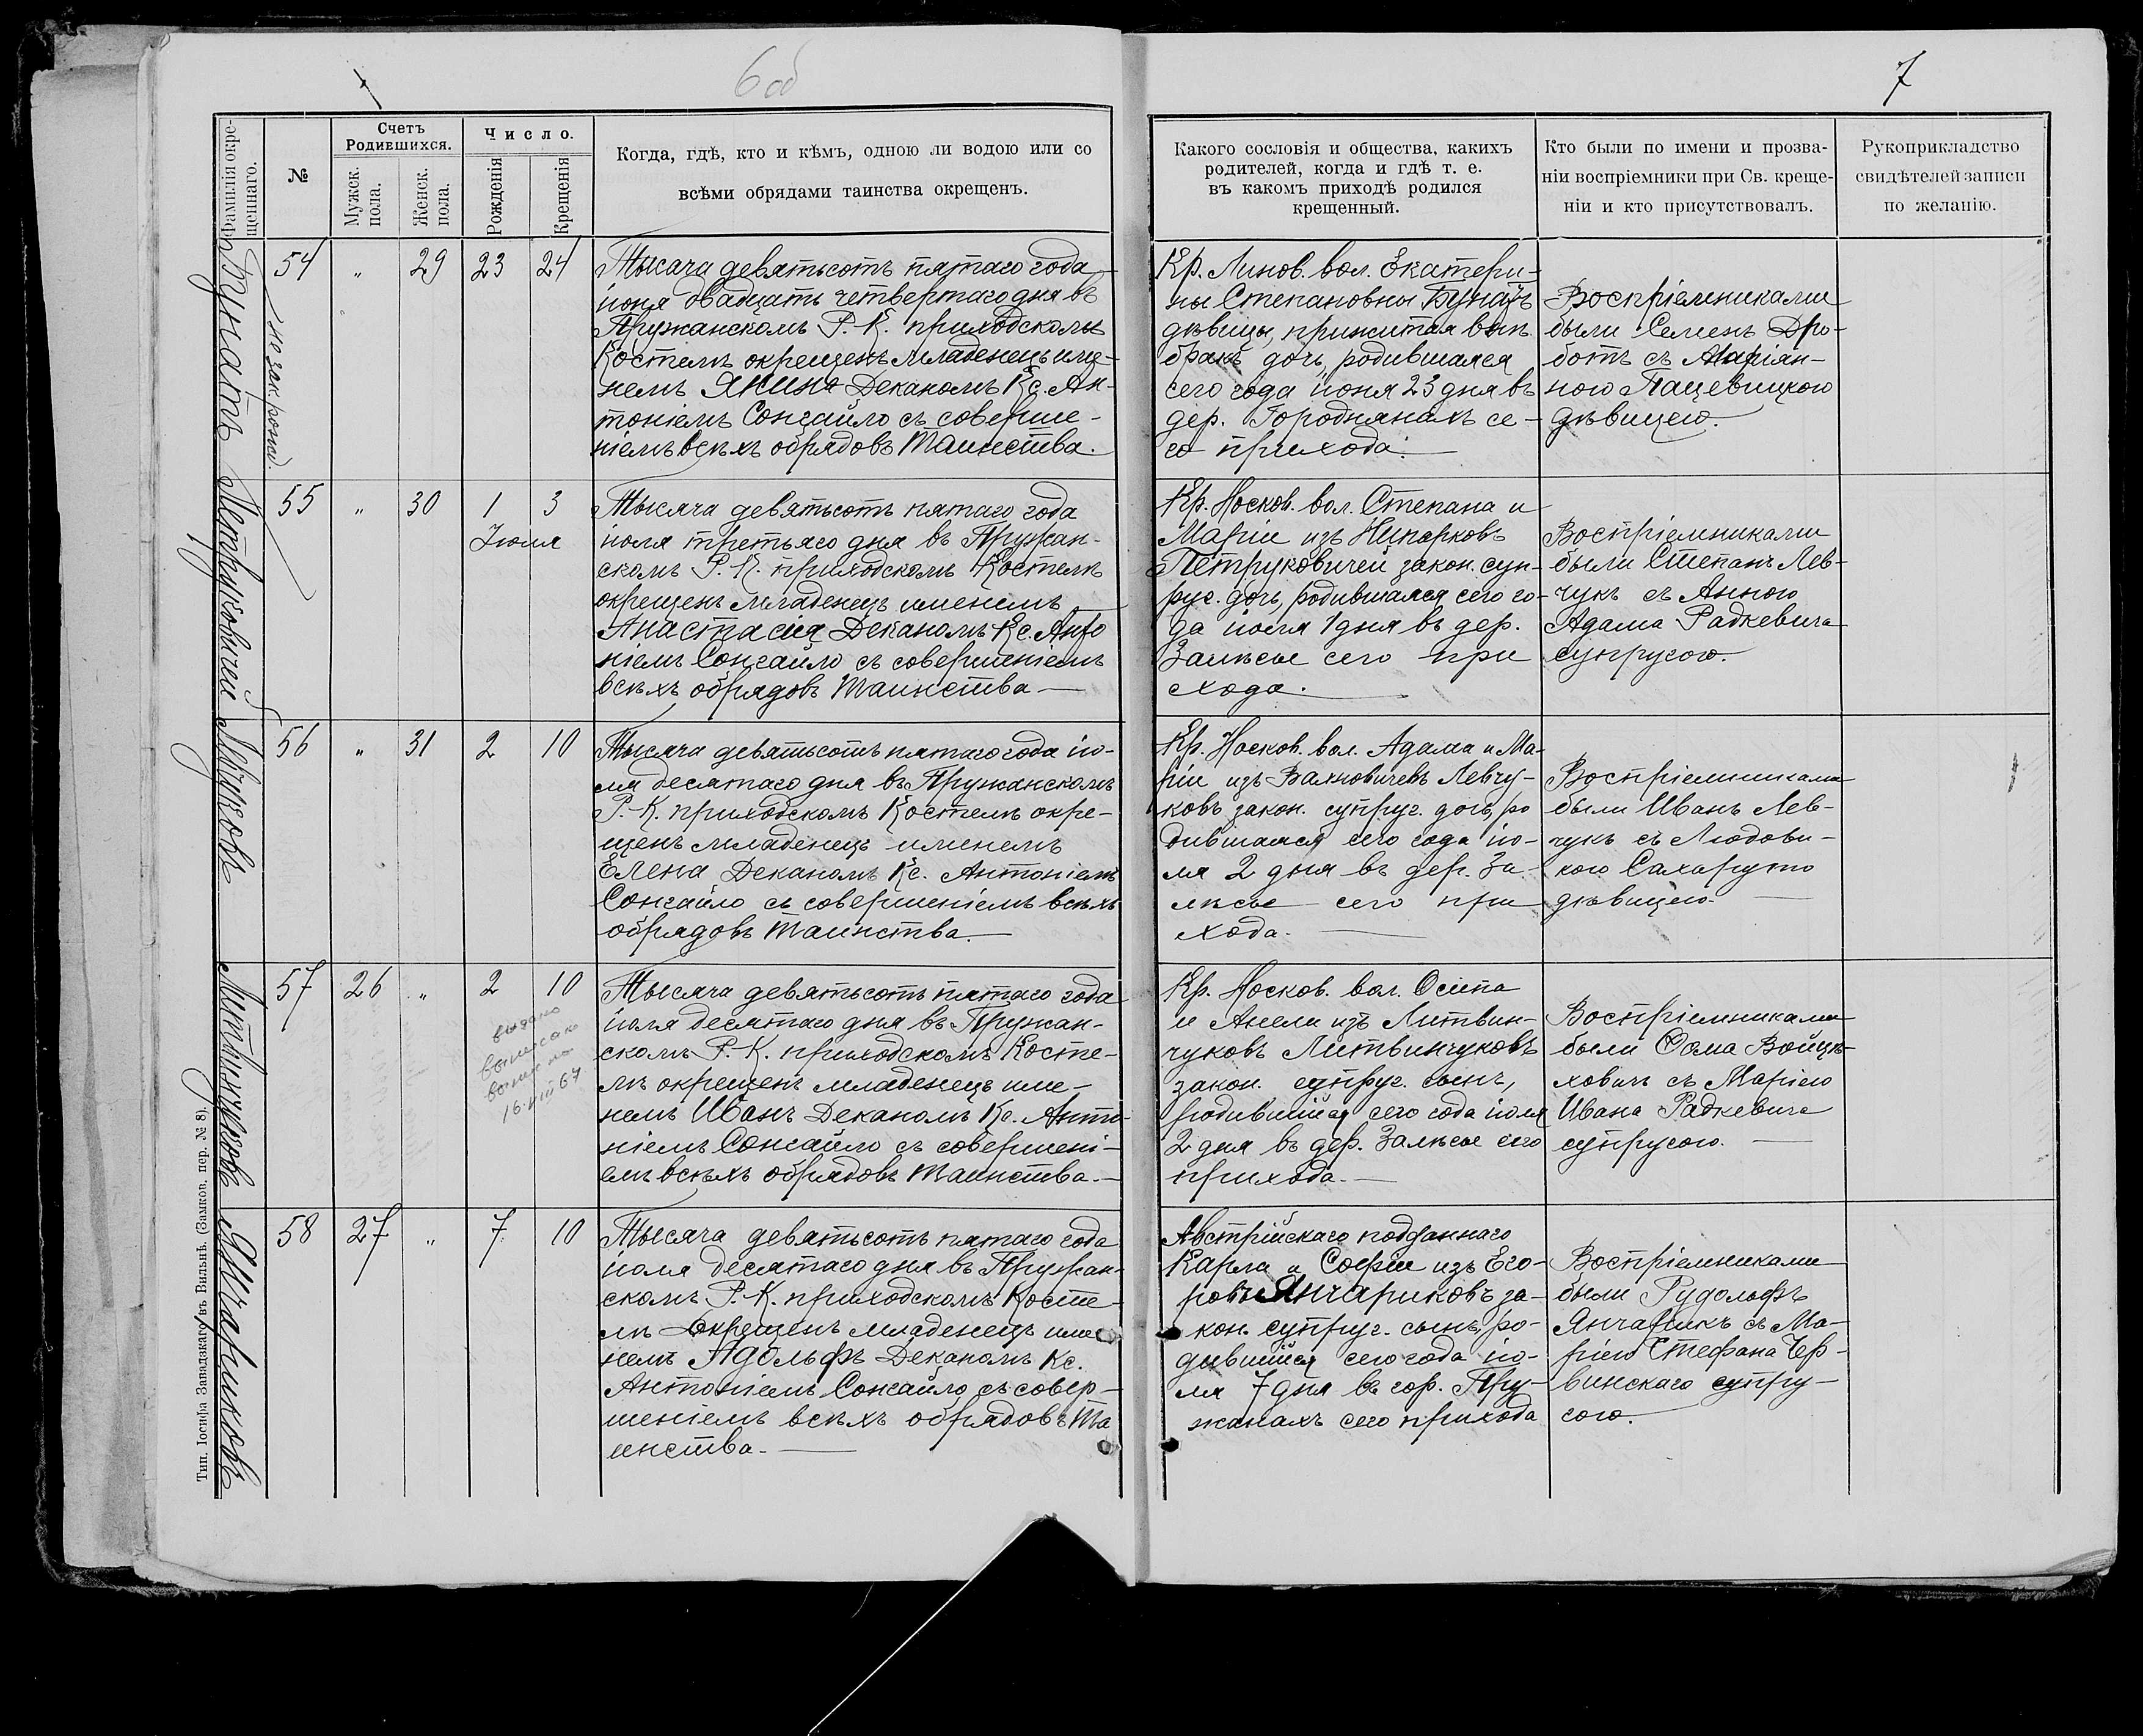 6 об
7
Фамилія окре-
щеннаго.
№
Счетъ
Родившихся.
Мужск.
пола.
Женск.
пола.
Число.
Рожденія
Крещенія
Когда, гдѣ, кто и кѣмъ, одною ли водою или со
всѣми обрядами таинства окрещенъ.
Какого сословія и общества, какихъ
родителей, когда и гдѣ т. е.
въ какомъ приходѣ родился
крещенный.
Кто были по имени и прозва-
ніи воспріемники при Св. креще-
ніи и кто присутствовалъ.
Рукоприкладство
свидѣтелей записи
по желанію.
Бунатъ
не зак. рожд.
54 „ 29 23 24
Тысяча девятьсотъ пятаго года
іюня двадцать четвертаго дня въ
Пружанскомъ Р. К. приходскомъ
Костелѣ окрещенъ младенецъ име-
немъ Янина Деканомъ Кс. Ан-
тоніемъ Сонгайло съ соверше-
ніемъ всѣхъ обрядовъ Таинства.
Кр. Линов. вол. Екатери-
ны Степановны Бунатъ
дѣвицы, прижитая внѣ
брака дочь, родившаяся
сего года іюня 23 дня въ
дер. Городнянахъ се-
го прихода.
Воспріемниками
были Семенъ Дро-
ботъ съ Маріян-
ною Пацевицкою
дѣвицею.
Петруковичей
55 „ 30 1 3
Іюля
Тысяча девятьсотъ пятаго года
іюля третьяго дня въ Пружан-
скомъ Р. К. приходскомъ Костелѣ
окрещенъ младенецъ именемъ
Анастасія Деканомъ Кс. Анто
ніемъ Сонгайло съ совершеніемъ
всѣхъ обрядовъ Таинства
Кр. Носков. вол. Степана и
Маріи изъ Ничпорковъ
Петруковичей закон. суп-
руг. дочь, родившаяся сего го-
да іюля 1 дня въ дер.
Залѣсье сего при
хода.
Воспріемниками
были Степанъ Лев-
чукъ съ Анною
Адама Радкевича
супругою.
Левчуковъ
56 „ 31 2 10
Тысяча девятьсотъ пятаго года ію-
ля десятаго дня въ Пружанскомъ
Р. К. приходскомъ Костелѣ окре-
щенъ младенецъ именемъ
Елена Деканомъ Кс. Антоніемъ
Сонгайло съ совершеніемъ всѣхъ
обрядовъ Таинства.
Кр. Носков. вол. Адама и Ма-
ріи изъ Вахновичевъ Левчу-
ковъ закон. супруг. дочь, ро
дившаяся сего года ію-
ля 2 дня въ дер. За-
лѣсье сего при
хода.
Воспріемниками
были Иванъ Лев-
чукъ съ Людови-
кою Сахаруто
дѣвицею.
Литвинчуковъ
57 26 „ 2 10
выдано
16.VIII 67
Тысяча девятьсотъ пятаго года
іюля десятаго дня въ Пружан-
скомъ Р. К. приходскомъ Косте-
лѣ окрещенъ младенецъ име-
немъ Иванъ Деканомъ Кс. Анто-
ніемъ Сонгайло съ совершені-
емъ всѣхъ обрядовъ Таинства.
Кр. Носков. вол. Осипа
и Анели изъ Литвин-
чуковъ Литвинчуковъ
закон. супруг. сынъ,
родившійся сего года іюля
2 дня въ дер. Залѣсье сего
прихода.
Воспріемниками
были Ѳома Войце-
ховичъ съ Маріею
Ивана Радкевича
супругою.
Янчариковъ
58 27 „ 7 10
Тысяча девятьсотъ пятаго года
іюля десятаго дня въ Пружан-
скомъ Р. К. приходскомъ Косте-
лѣ окрещенъ младенецъ име
немъ Адольфъ Деканомъ Кс.
Антоніемъ Сонгайло съ совер-
шеніемъ всѣхъ обрядовъ Та
инства.
Австрійскаго подданнаго
Карла и Софіи изъ Его-
ровъ Янчариковъ за-
кон. супруг. сынъ, ро-
дившійся сего года ію-
ля 7 дня въ гор. Пру-
жанахъ сего прихода
Воспріемниками
были Рудольфъ
Янчарикъ съ Ма-
ріею Стефана Чер-
винскаго супру-
гою.
Тип. Іосифа Завадзкаго въ Вильнѣ. (Замков. пер. № 8).